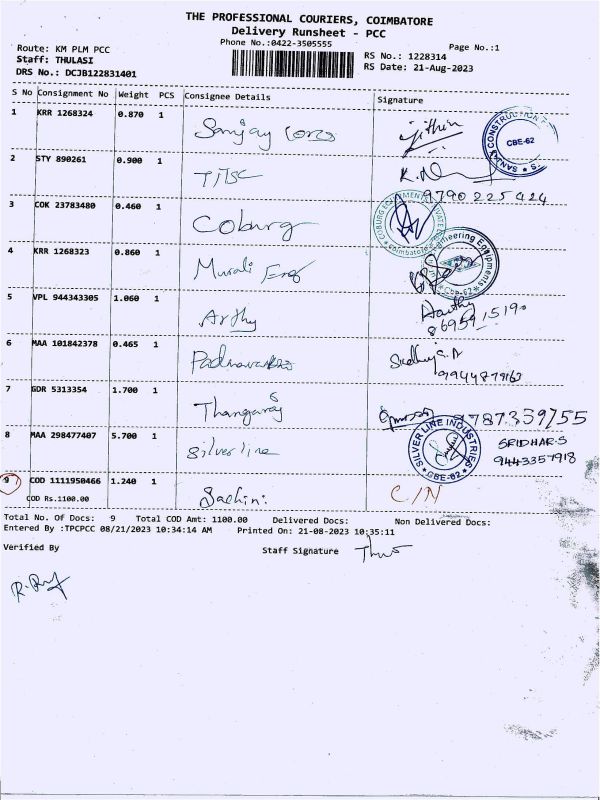 THE PROFESSIONAL COURIERS, COIMBATORE
Delivery Runsheet - PCC
Phone No.:0422-3505555
Page No.:1
Route: KM PLM PCC
Staff: THULASI
DRS No.: DCJB122831401
RS No.: 1228314
RS Date: 21-Aug-2023
S No Consignment No Weight PCS Consignee Details Signature
1 KRR 1268324 0.870 1 Sanjay jithin
CBE-62
2 STY 890261 0.900 1
9790225424
3 COK 23783480 0.460 1 Coburg
4 KRR 1268323 0.860 1 Murali Eng
Engineering Equipments
Cbe-62
5 VPL 944343305 1.060 1 Arthy Aarthy
86959 15190
6 MAA 101842378 0.465 1
9944879163
7 GDR 5313354 1.700 1 Thangaraj 9787339755
8 MAA 298477407 5.700 1 Silver line SILVER LINE INDUSTRIES CBE-62 SRIDHAR.S
9443357918
9 COD 1111950466 1.240 1 Sachini C/N
COD Rs.1100.00
Total No. Of Docs: 9 Total COD Amt: 1100.00 Delivered Docs: Non Delivered Docs:
Entered By :TPCPCC 08/21/2023 10:34:14 AM Printed On: 21-08-2023 10:35:11
Verified By Staff Signature